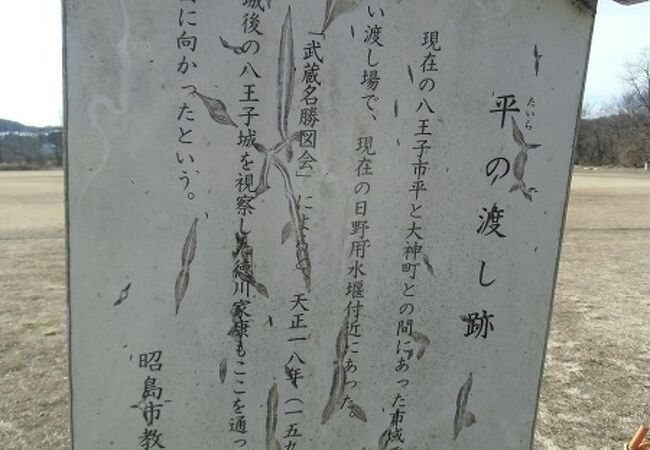 平の渡し跡
たいら
現在の八王子市平と大神町との間にあった市域で
い渡し場で、現在の日野用水堰付近にあった。
「武蔵名勝図会」によると、天正一八年(一五九
城後の八王子城を視察した徳川家康もここを通っ
に向かったという。
昭島市教